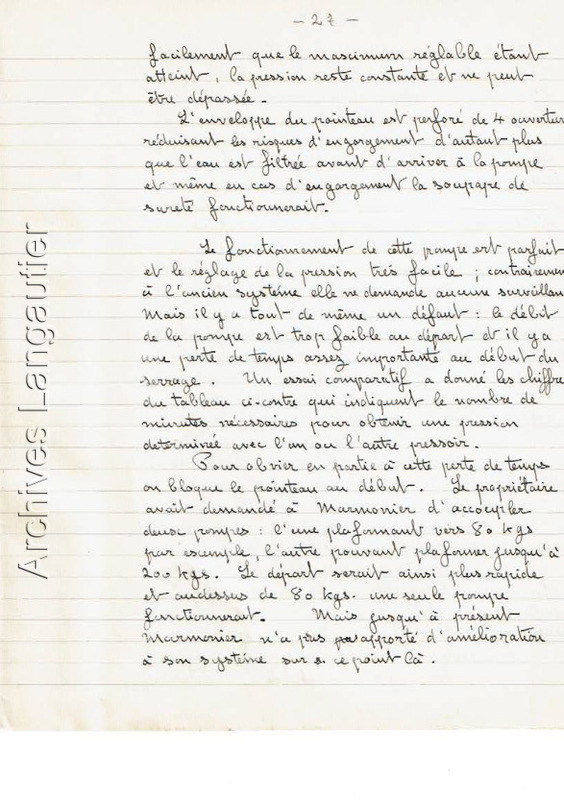 - 27 -
facilement que le mascimum réglable étant
atteint, la pression reste constante et ne peut
être dépassée.
L'enveloppe du pointeau est perforé de 4 ouvertur
réduisant les risques d'engorgement d'autant plus
que l'eau est filtrée avant d'arriver à la pompe
et même en cas d'engorgement la soupape de
sureté fonctionnerait.
Le fonctionnement de cette pompe est parfait
et le réglage de la pression très facile ; contrairemen
à l'ancien système elle ne demande aucune surveillan
Mais il y a tout de même un défaut : le débit
de la pompe est trop faible au départ et il y a
une perte de temps assez importante au début du
serrage. Un essai comparatif a donné les chiffre
du tableau ci-contre qui indiquent le nombre de
minutes nécessaires pour obtenir une pression
determinée avec l'un ou l'autre pressoir.
Pour obvier en partie à cette perte de temps
on bloque le pointeau au début. Le propriétaire
avait demandé à Marmonier d'accoupler
deux pompes : l'une plafonnant vers 80 kgs
par exemple, l'autre pouvant plafonner jusqu'à
200 kgs. Le départ serait ainsi plus rapide
et audessus de 80 kgs. une seule pompe
fonctionnerait. Mais jusqu'à présent
Marmonier n'a pas apporté d'amélioration
à son système sur ce point là.
Archives Langautier